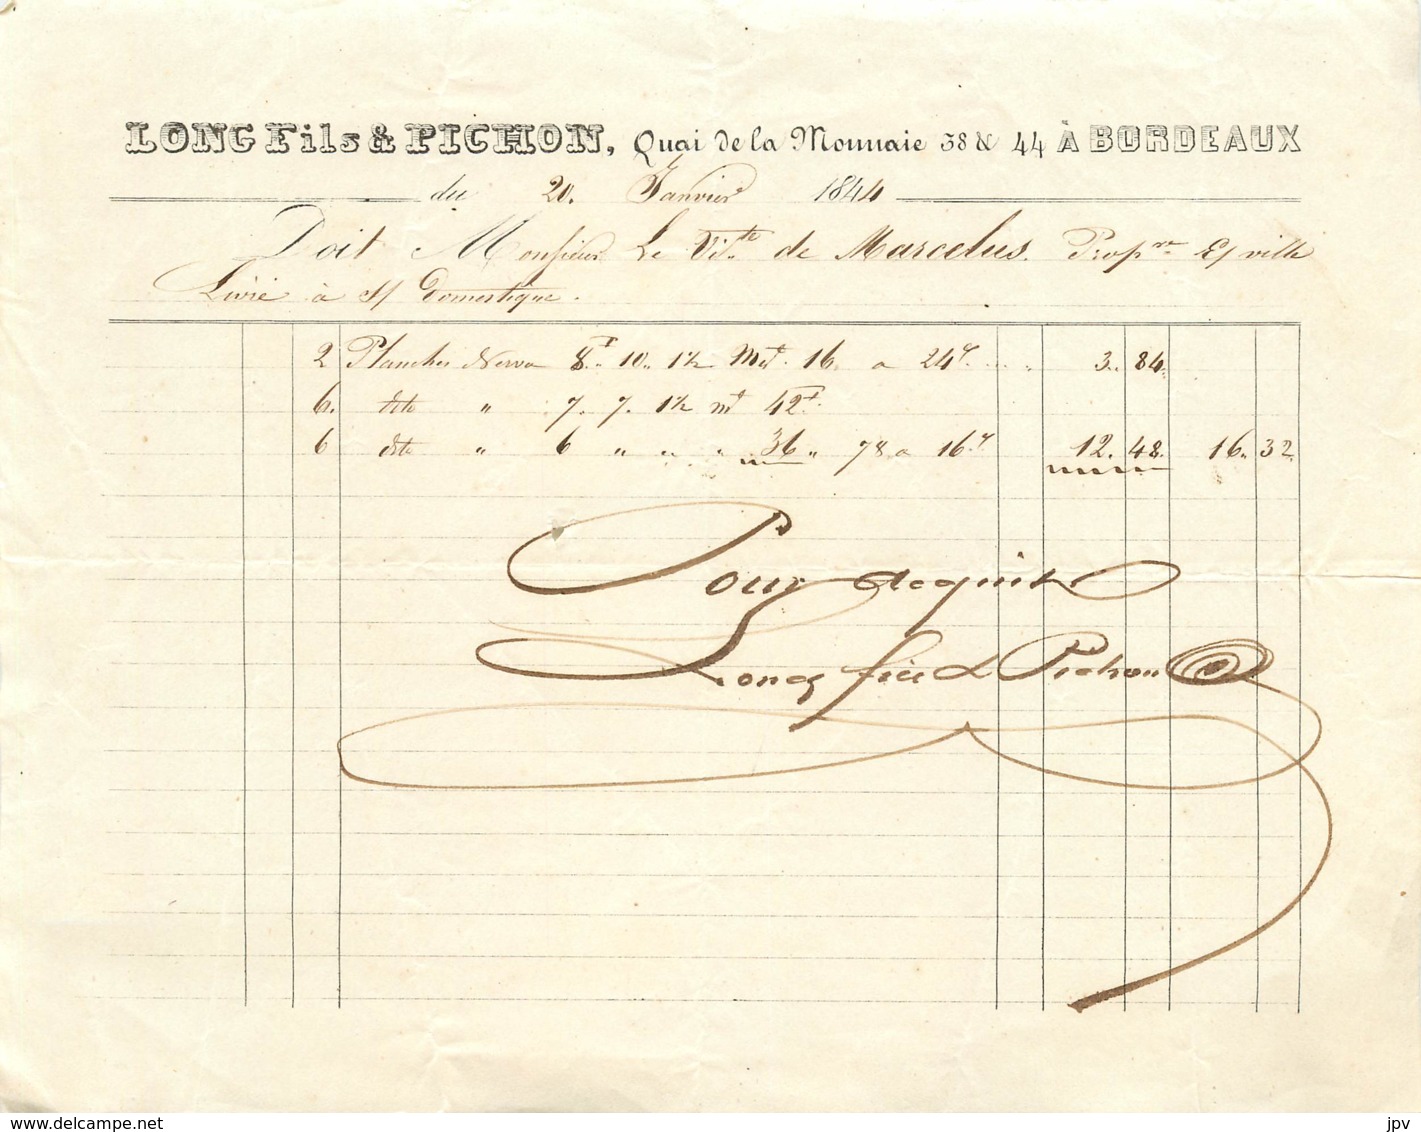 LONG Fils & PICHON, Quai de la Monnaie 38 & 44 À BORDEAUX
du 20. Janvier 1844
Doit Monsieur Le Vi.te de Marcelus. Prop.re En ville
Livré à S/ Domestique.
2 Planches Nerva 8 P.. 10.. 1½ Met. 16 a 24 c. 3.. 84..
6. dito " 7. 7. 1½ mt 42 P.
6 dito " 6 " " " 36 " 78 a 16 c. 12. 48. 16. 32.
Pour acquit
Long fils & Pichon
www.delcampe.net
jpv